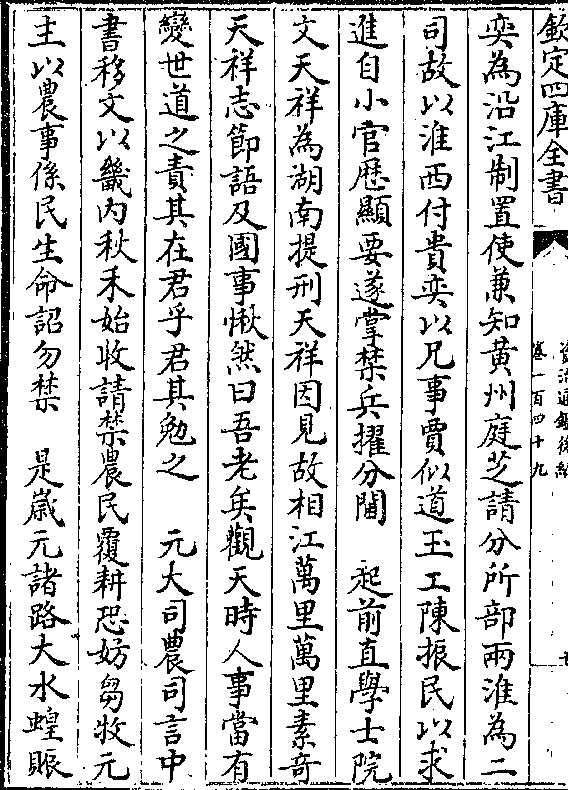 欽定四庫全書
資治通鑑後編
卷一百四十九
奕為沿江制置使兼知黄州庭芝請分所部兩淮為二
司故以淮西付貴奕以兄事賈似道玉工陳振民以求
進自小官歴顯要遂掌禁兵擢分閫　起前直學士院
文天祥為湖南提刑天祥因見故相江萬里萬里素竒
天祥志節語及國事愀然曰吾老矣觀天時人事當有
變世道之責其在君乎君其勉之　元大司農司言中
書移文以畿内秋禾始收請禁農民覆耕恐妨芻牧元
主以農事係民生命詔勿禁　是嵗元諸路大水蝗賑